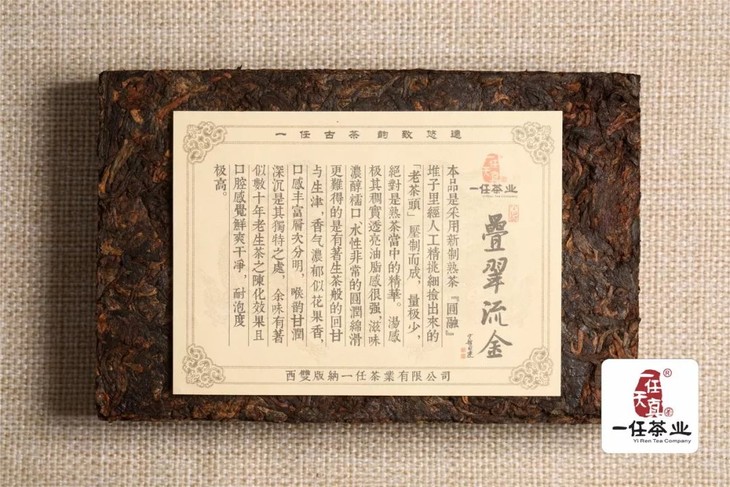 一任古茶韵致悠遠
一任茶业
Yi Ren Tea Company
疊翠流金
本品是采用新制熟茶『圓融』
堆子里經人工精挑細撿出來的
「老茶頭」壓制而成，量极少，
絕對是熟茶當中的精華。湯感
极其稠實透亮油脂感很强，滋味
濃醇糯口，水性非常的圓潤綿滑
更難得的是有著生茶般的回甘
与生津，香气濃郁似花果香，
口感丰富层次分明，喉韵甘潤
深沉是其獨特之處，余味有著
似數十年老生茶之陳化效果且
口腔感覺鮮爽干凈，耐泡度
极高。
西雙版納一任茶業有限公司
一任
天真
®
一任茶业
Yi Ren Tea Company